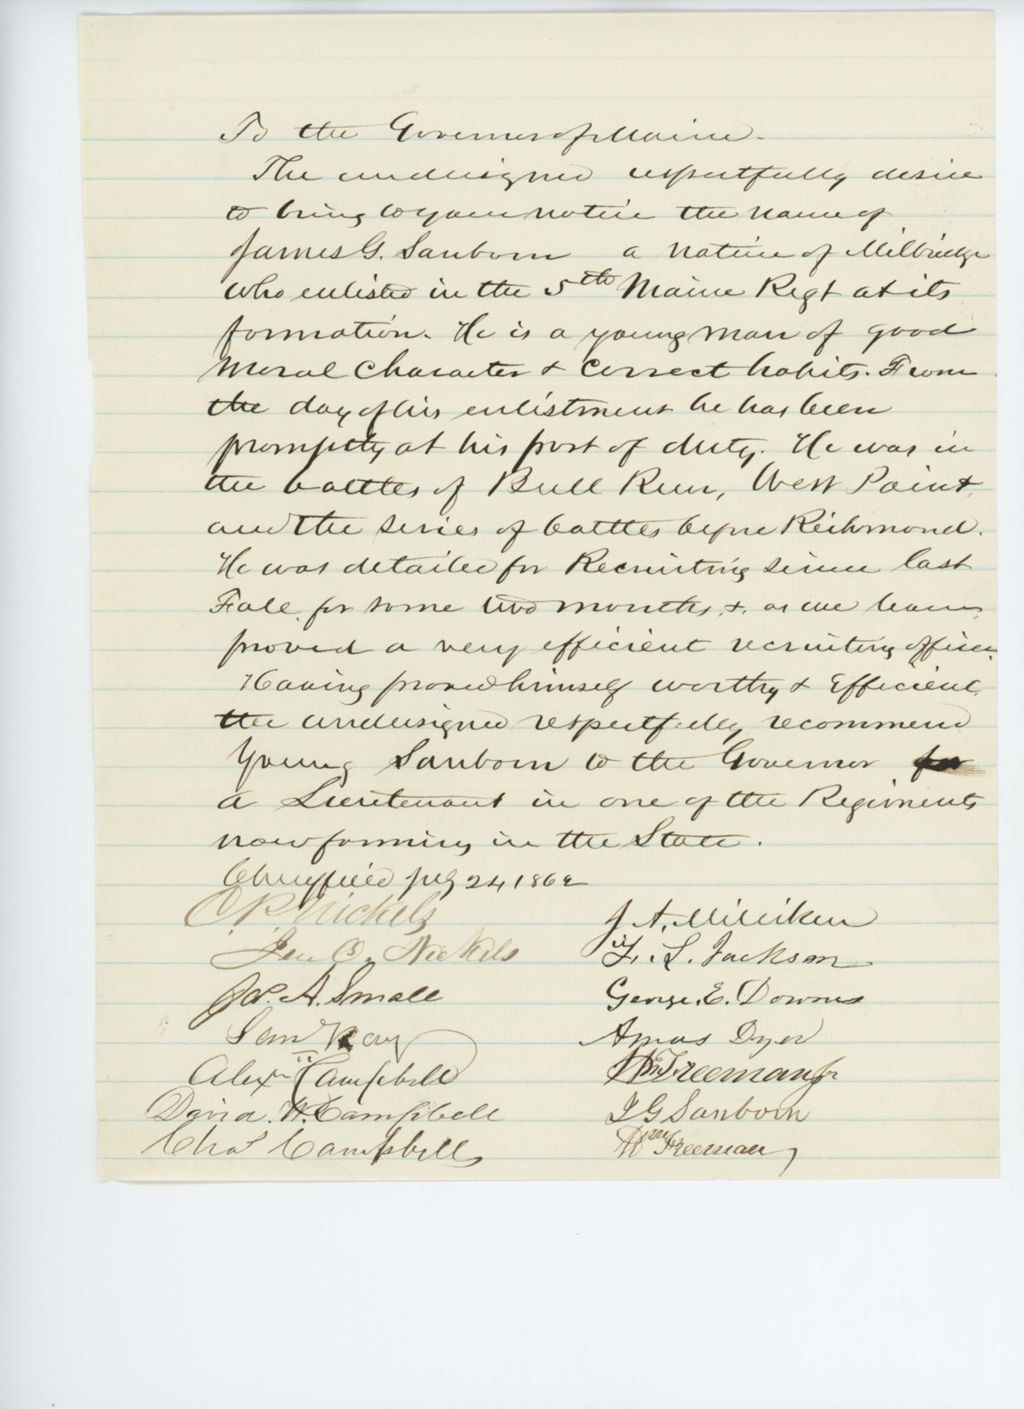 To the Governor of Maine.
The undersigned respectfully desire
to bring to your notice the name of
James G. Sanborn a native of Milbridge
who enlisted in the 5th Maine Regt at its
formation. He is a young man of good
Moral Character & Correct habits. From
the day of his enlistment he has been
promptly at his post of duty. He was in
the battles of Bull Run, West Point,
and the series of battles before Richmond.
He was detailed for Recruiting service last
Fall, for some two months, & as we learn,
proved a very efficient recruiting officer.
Having proved himself worthy & Efficient,
the undersigned respectfully recommend
Young Sanborn to the Governor for
a Lieutenant in one of the Regiments
now forming in the State.
Cherryfield July 24, 1862
C. P. Nickels
J. A. Milliken
Nickels
L. Jackson
A. Small
George. E. Downes
Sam Ray
Amos Dyer
Alexr Campbell
Wm Freeman Jr
David. W. Campbell
J G Sanborn
Chas Campbell
Wm Freeman